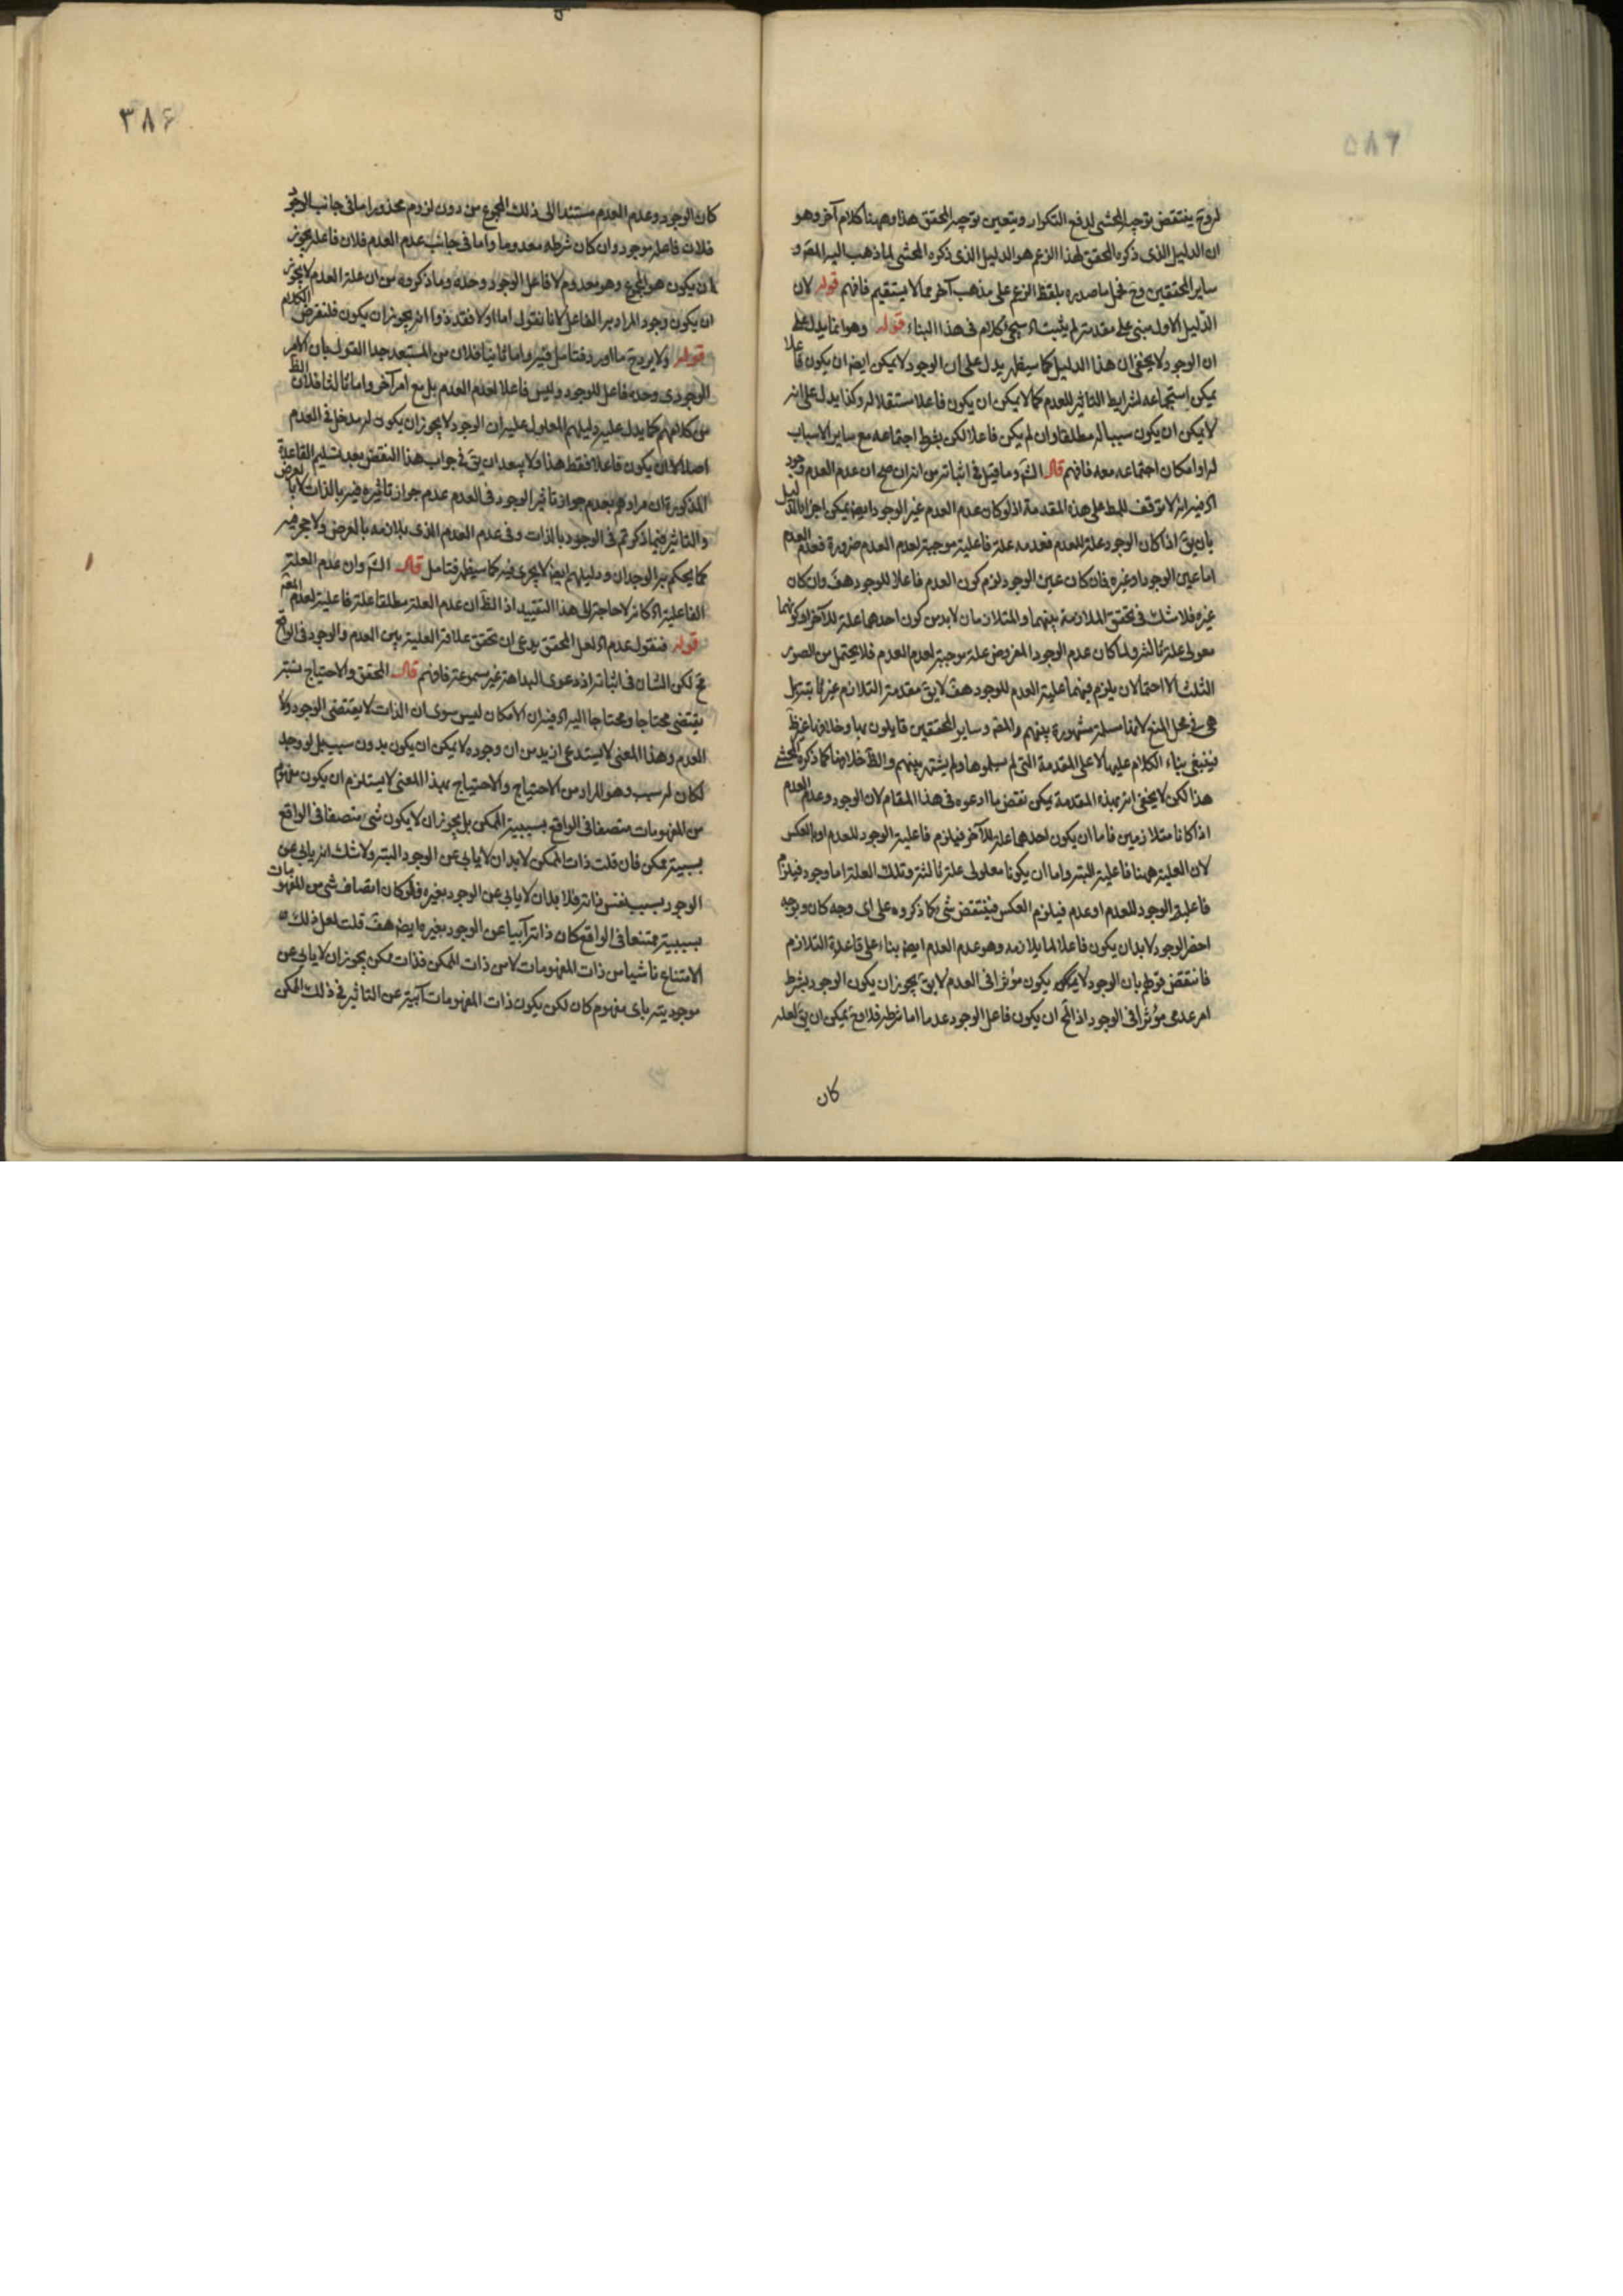 له وح ينتقض توجيه المحشى لدفع التكرار ويتعين توجيه المحقق هذا وههنا كلام آخر وهو
ان الدليل الذى ذكره المحقق لهذا الزعم هو الدليل الذى ذكره المحشى لما ذهب اليه المصّ و
ساير المحققين وح فحمل ما صدره بلفظ الزعم على مذهب آخر مما لا يستقيم فافهم قوله لان
الدليل الاول مبنى على مقدمة لم يثبت اه سيجئ كلام فى هذا البناء قوله وهو انما يدل على
ان الوجود لا يخفى ان هذا الدليل كما سيظهر يدل على ان الوجود لا يمكن ايضا ان يكون فاعلا
يمكن استجماعه لشرايط التاثير للعدم كما لا يمكن ان يكون فاعلا مستقلا له وكذا يدل على انه
لا يمكن ان يكون سببا له مطلقا وان لم يكن فاعلا لكن بشرط اجتماعه مع ساير الاسباب
له او امكان اجتماعه معه فافهم قال الشّ وما قيل فى اثباته من انه ان صح ان عدم العدم وجود
اه فيه انه لا توقف للمط على هذه المقدمة اذ لو كان عدم العدم غير الوجود ايضا يمكن اجراء الدليل
بان يقّ اذا كان الوجود علة للعدم فعدمه علة فاعلية موجبة لعدم العدم ضرورة فعدم العدم
اما عين الوجود او غيره فان كان عين الوجود لزم كون العدم فاعلا للوجود هف وان كان
غيره فلا شك فى تحقق الملازمة بينهما والمتلازمان لا بد من كون احدهما علة للآخر او كونهما
معلولى علة ثالثة ولما كان عدم الوجود المفروض علة موجبة لعدم العدم فلا يحتمل من الصور
الثلث الا احتمالان يلزم فيهما علية العدم للوجود هف لا يقّ مقدمة التلازم غير ثابتة بل
هى فى محل المنع لانها مسلمة مشهورة بينهم والمصّ وساير المحققين قايلون بها وخلافها غير ظّ
فينبغى بناء الكلام عليها لا على المقدمة التى لم يسلموها ولم يشتهر بينهم والظّ خلافها كما ذكره المحشى
هذا لكن لا يخفى انه بهذه المقدمة يمكن نقض ما ادعوه فى هذا المقام لان الوجود وعدم العدم
اذا كانا متلازمين فاما ان يكون احدهما علة للآخر فيلزم فاعلية الوجود للعدم او بالعكس
لان العلية ههنا فاعلية البتة واما ان يكونا معلولى علة ثالثة وتلك العلة اما وجود فيلزم
فاعلية الوجود للعدم او عدم فيلزم العكس فينتقض شى مما ذكروه على اى وجه كان وبوجه
اخصر الوجود لا بد ان يكون فاعلا لما يلازمه وهو عدم العدم ايضا بناء على قاعدة التلازم
فانتقض قولهم بان الوجود لا يمكن يكون مؤثرا فى العدم لا يقّ يجوز ان يكون الوجود بشرط
امر عدمى مؤثرا فى الوجود اذ المح ان يكون فاعل الوجود عدما اما شرطه فلا وح يمكن ان يقّ لعله
كان
٣٨۶
كان الوجود وعدم العدم مستندا الى ذلك المجموع من دون لزوم محذور اما فى جانب الوجود
فلان فاعله موجود وان كان شرطه معدوما واما فى جانب عدم العدم فلان فاعله يجوز
ان يكون هو المجموع وهو معدوم لا فاعل الوجود وحده وما ذكروه من ان علة العدم لا يجوز
ان يكون وجود المراد به الفاعل لانا نقول اما اولا فقد ذوا انه يجوز ان يكون فلنفرض الكلام
قوله ولا يرد ح ما اورد فتامل فيه واما ثانيا فلان من المستبعد جدا القول بان الامر
الوجودى وحده فاعل للوجود وليس فاعلا لعدم العدم بل مع امر آخر واما ثالثا فلان الظّ
من كلامهم كما يدل عليه دليلهم المعلول عليه ان الوجود لا يجوز ان يكون له مدخل فى العدم
اصلا لا ان يكون فاعلا فقط هذا ولا يبعد ان يقّ فى جواب هذا النقض بعد تسليم القاعدة
المذكورة ان مرادهم بعدم جواز تاثير الوجود فى العدم عدم جواز تاثيره فيه بالذات لا بالعرض
والتاثير فيما ذكرتم فى الوجود بالذات وفى عدم العدم الذى يلازمه بالعرض ولا حجر فيه
كما يحكم به الوجدان ودليلهم ايضا لا يجرى فيه كما سيظهر فتامل قال الشّ وان عدم العلة
الفاعلية اه كانه لا حاجة الى هذا التقييد اذ الظّ ان عدم العلة مطلقا علة فاعلية لعدم المعلّم
قوله فنقول عدم اه لعل المحقق يدعى ان تحقق علاقة العلية بين العدم والوجود فى الواقع
مح لكن الشان فى اثباته اذ دعوى البداهة غير مسموعة فافهم قال المحقق والاحتياج نسبة
يقتضى محتاجا ومحتاجا اليه اه فيه ان الامكان ليس سوى ان الذات لا يقتضى الوجود ولا
العدم وهذا المعنى لا يستدعى ازيد من ان وجوده لا يمكن ان يكون بدون سبب بل لو وجد
لكان له سبب وهو المراد من الاحتياج والاحتياج بهذا المعنى لا يستلزم ان يكون مفهوم
من المفهومات متصفا فى الواقع بسببية الممكن بل يجوز ان لا يكون شى متصفا فى الواقع
بسببية ممكن فان قلت ذات الممكن لا بد ان لا يابى عن الوجود البتة ولا شك انه يابى عن
الوجود بسبب نفس ذاته فلا بد ان لا يابى عن الوجود بغيره فلو كان اتصاف شى من المفهومات
بسببية ممتنعا فى الواقع كان ذاته آبيا عن الوجود بغيره ايضا هف قلت لعل ذلك
الامتناع ناشيا من ذات المفهومات لا من ذات الممكن فذات ممكن يجوز ان لا يابى عن
موجوديته باى مفهوم كان لكن يكون ذات المفهومات آبية عن التاثير فى ذلك الممكن